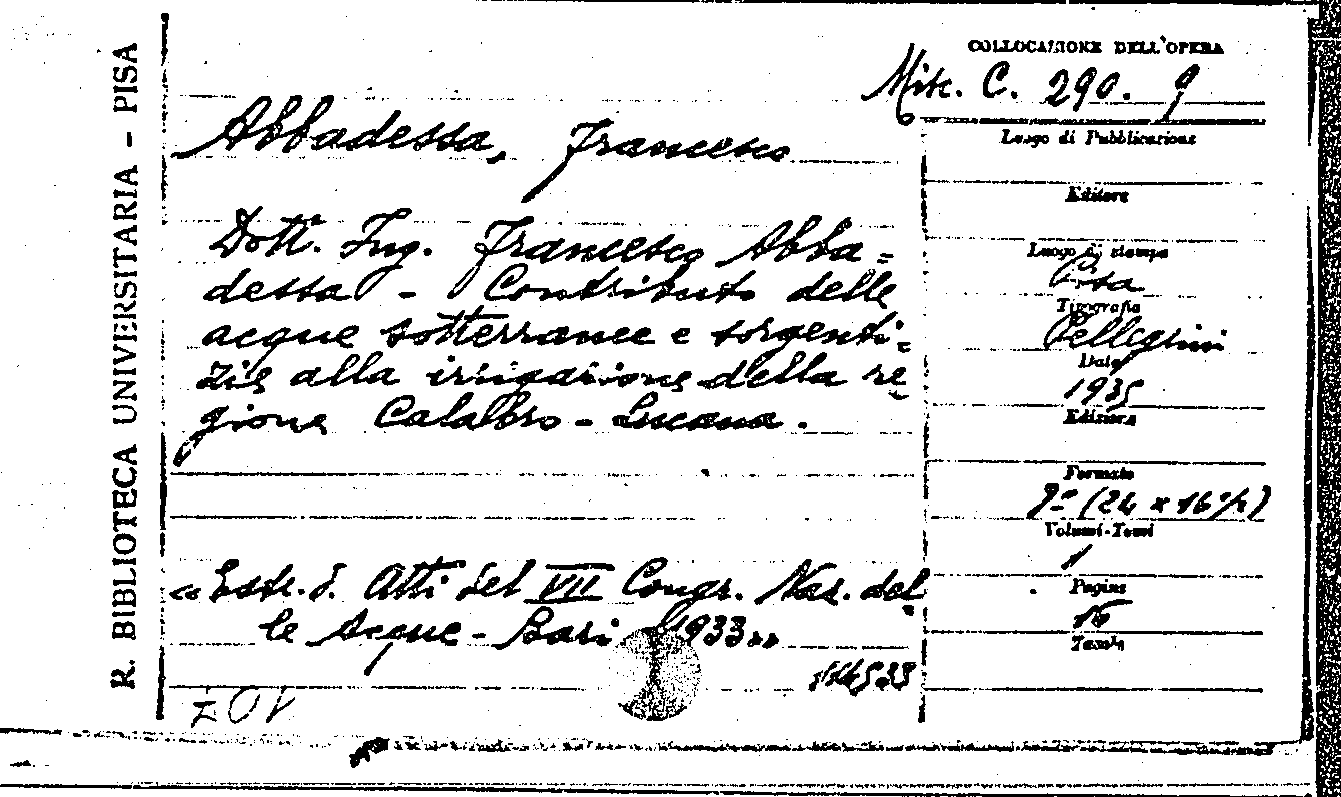 R. BIBLIOTECA UNIVERSITARIA - PISA
COLLOCAZIONE DELL'OPERA
Misc. C. 290. 9
Abbadessa, Francesco
Dott. Ing. Francesco Abba=
dessa - Contributo delle
acque sotterranee e sorgenti=
zie alla irrigazione della re=
gione Calabro-Lucana.
"Estr. d. Atti del VII Congr. Naz. del=
le Acque - Bari 1933"
Luogo di Pubblicazione
Editore
Luogo di stampa
Pisa
Tipografia
Pellegrini
Data
1935
Edizione
Formato
8° (24 x 16½)
Volumi-Tomi
1
Pagine
16
Tavole